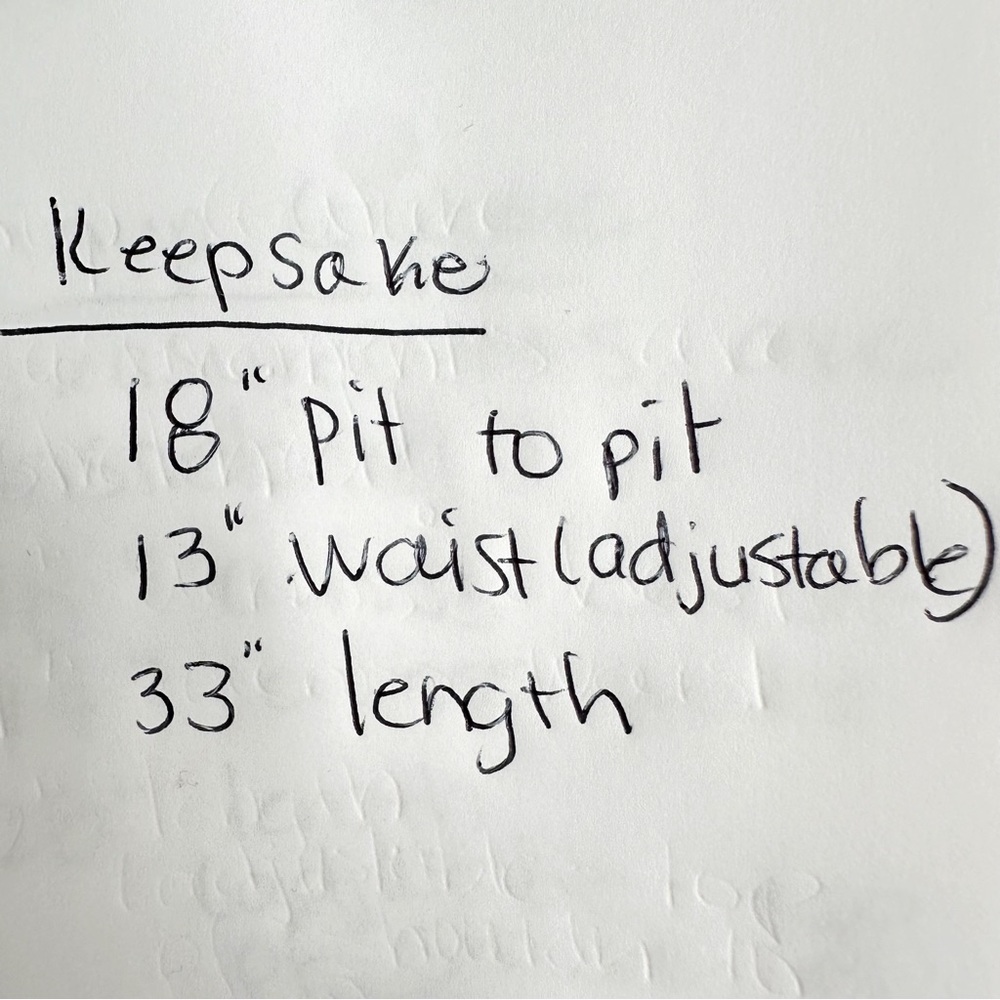 Keepsake
18" pit to pit
13" waist (adjustable)
33" length